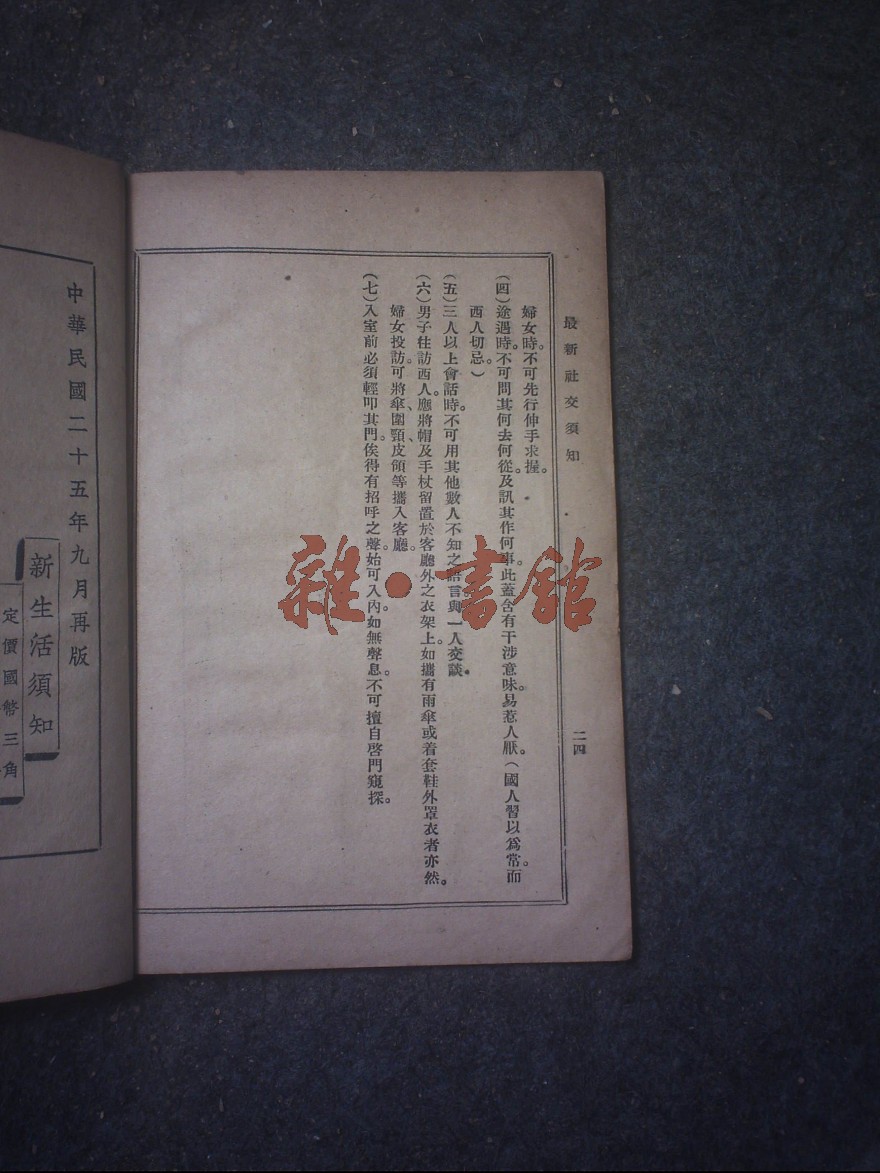 最新社交須知
二四
婦女時。不可先行伸手求握。
(四)途遇時。不可問其何去何從。及訊其作何事。此蓋含有干涉意味。易惹人厭。(國人習以爲常。而
西人切忌。)
(五)三人以上會話時。不可用其他數人不知之語言與一人交談。
(六)男子往訪西人。應將帽及手杖留置於客廳外之衣架上。如攜有雨傘或着套鞋外罩衣者亦然。
婦女投訪。可將傘、圍頸、皮領等攜入客廳。
(七)入室前必須輕叩其門。俟得有招呼之聲。始可入內。如無聲息。不可擅自啓門窺探。
雜·書館
中華民國二十五年九月再版
新生活須知
定價國幣三角